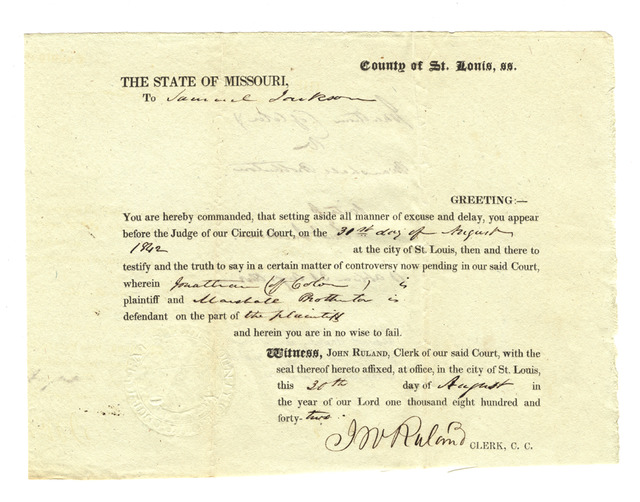 County of St. Louis, ss.
THE STATE OF MISSOURI,
To Samuel Jackson
GREETING:—
You are hereby commanded, that setting aside all manner of excuse and delay, you appear
before the Judge of our Circuit Court, on the 30th day of August
1842 at the city of St. Louis, then and there to
testify and the truth to say in a certain matter of controversy now pending in our said Court,
wherein Jonathan (of Color) is
plaintiff and Marshall Brotherton is
defendant on the part of the plaintiff
and herein you are in no wise to fail.
Witness, JOHN RULAND, Clerk of our said Court, with the
seal thereof hereto affixed, at office, in the city of St. Louis,
this 30th day of August in
the year of our Lord one thousand eight hundred and
forty-two.
Ruland CLERK, C. C.